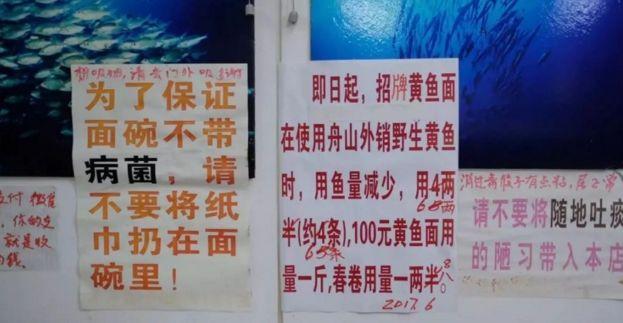 想吸烟，请去门外吸
为了保证
面碗不带
病菌，请
不要将纸
巾扔在面
碗里！
即日起，招牌黄鱼面
在使用舟山外销野生黄鱼
时，用鱼量减少，用4两
68两
半(约4条),100元黄鱼面用
65条
量一斤,春卷用量一两半。
2017.6
请不要将随地吐痰
的陋习带入本店
支付
，你的
就是收
钱。